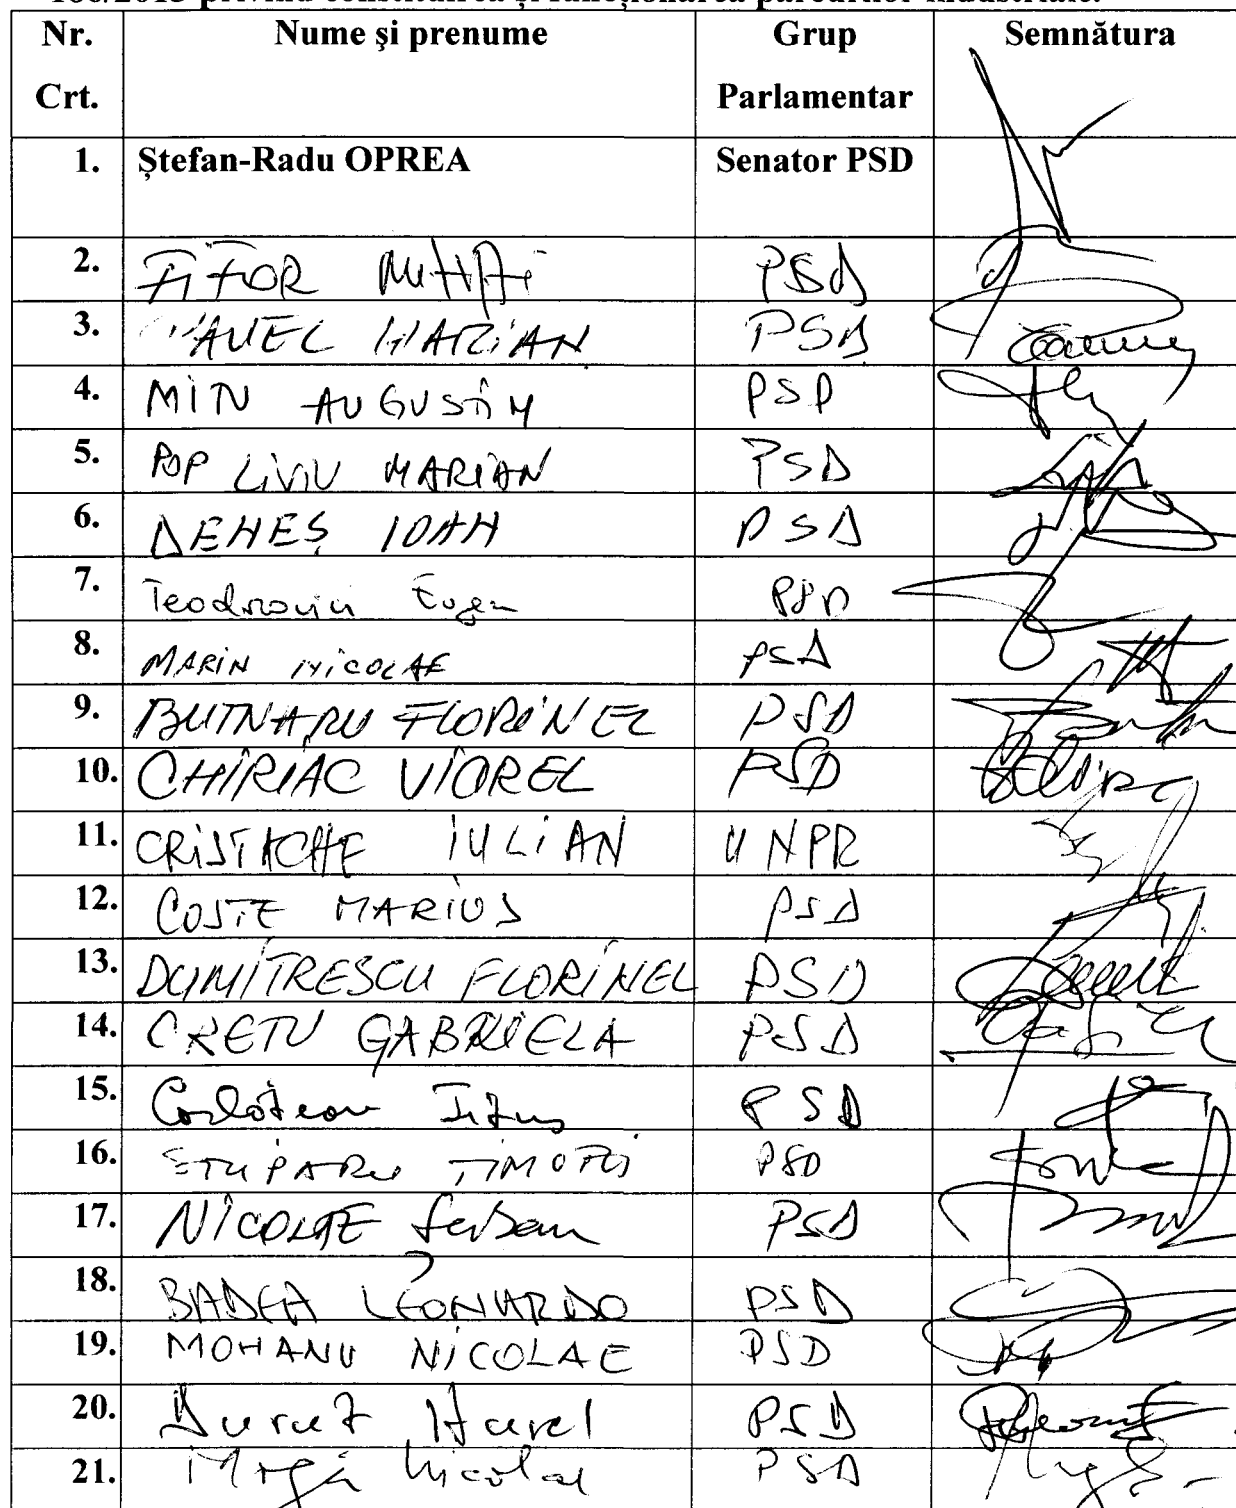 186/2013 privind constituirea și funcționarea parcurilor industriale.
Nr. Crt. Nume şi prenume Grup Parlamentar Semnătura
1. Ștefan-Radu OPREA Senator PSD
2. FIFOR MIHAI PSD
3. PAVEL MARIAN PSD
4. MITU AUGUSTIN PSD
5. POP LIVIU MARIAN PSD
6. DENEȘ IOAN PSD
7. Teodorovici Eugen PSD
8. MARIN NICOLAE PSD
9. BUTNARU FLORINEL PSD
10. CHIRIAC VIOREL PSD
11. CRISTACHE IULIAN UNPR
12. COSTE MARIUS PSD
13. DUMITRESCU FLORINEL PSD
14. CRETU GABRIELA PSD
15. Corlățean Titus PSD
16. STUPARU TIMOTEI PSD
17. NICOLAE Șerban PSD
18. BADEA LEONARDO PSD
19. MOHANU NICOLAE PSD
20. Duruț Aurel PSD
21. Moga Nicolae PSD